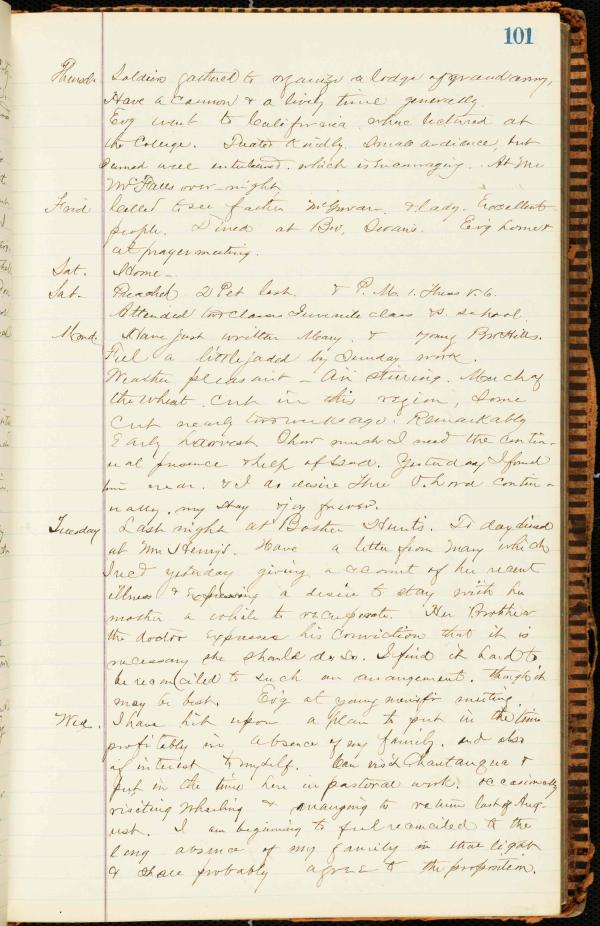 101
Thursd. Soldiers gathered to organize a lodge of grand army,
Have a Cannon & a lively time generally.
Evg went to California where lectured at
the College. Treated Kindly. Small audience, but
seemed well entertained. which is Encouraging. At Mr
McFalls over night
Frid Called to see father McGowan & lady. Excellent
people. Dined at Bro. Swan's. Evg home &
at prayer meeting.
Sat. Home -
Sab- Preached 2 Pet last. & P.M. 1. Thess V. 6.
Attended two classes Juvenile class & S. School.
Mond. Have just written Mary. & young Bro Hills.
Feel a little jaded by Sunday work.
Weather pleasant - Air stirring. Much of
the wheat cut in this region, Some
cut nearly two weeks ago. Remarkably
Early harvest. Oh how much I need the contin-
ual presence & help of God. Yesterday I found
him near. & I do desire Thee O. Lord contin-
ually. my stay & joy forever.
Tuesday Last night at Hunts. To day dined
at Mr Henry's. Have a letter from Mary which
I rec'd yesterday giving account of her recent
illness & Expressing a desire to stay with her
mother a while to recuperate. Her Brother
the doctor expresses his conviction that it is
necessary she should do so. I find it hard to
be reconciled to such an arrangement. though it
may be best. Evg at young mens pr meeting
Wed. I have hit upon a plan to put in the time
profitably in absence of my family. and also
of interest to myself. Can visit Chautauqua &
put in the time here in pastoral work. occasionally
visiting Wheeling & arranging to return last of Aug-
ust. I am beginning to feel reconciled to the
long absence of my family in that light
& shall probably agree to the proposition.